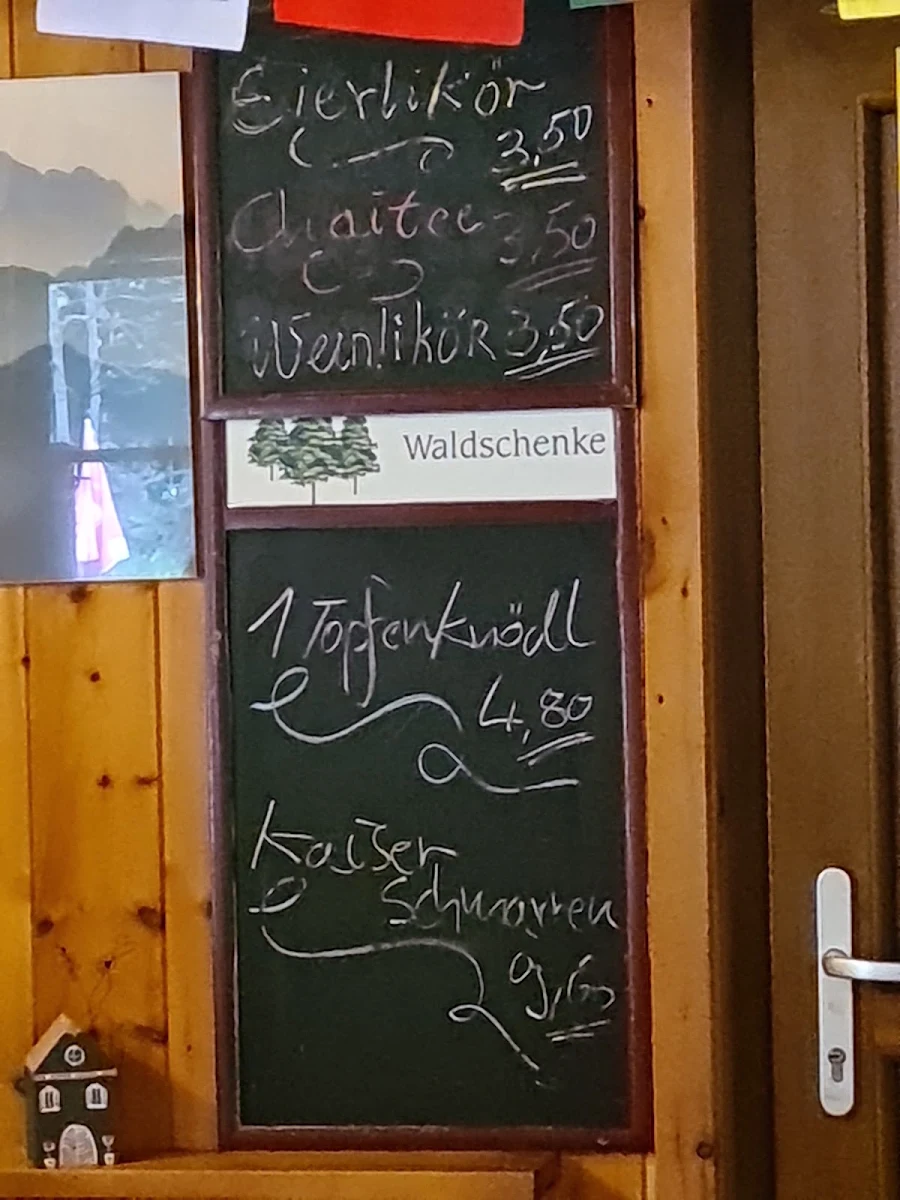 Eierlikör
3,50
Chaitee 3,50
Weinlikör 3,50
Waldschenke
1 Topfenknödl
4,80
Kaiser
Schmarren
9,60